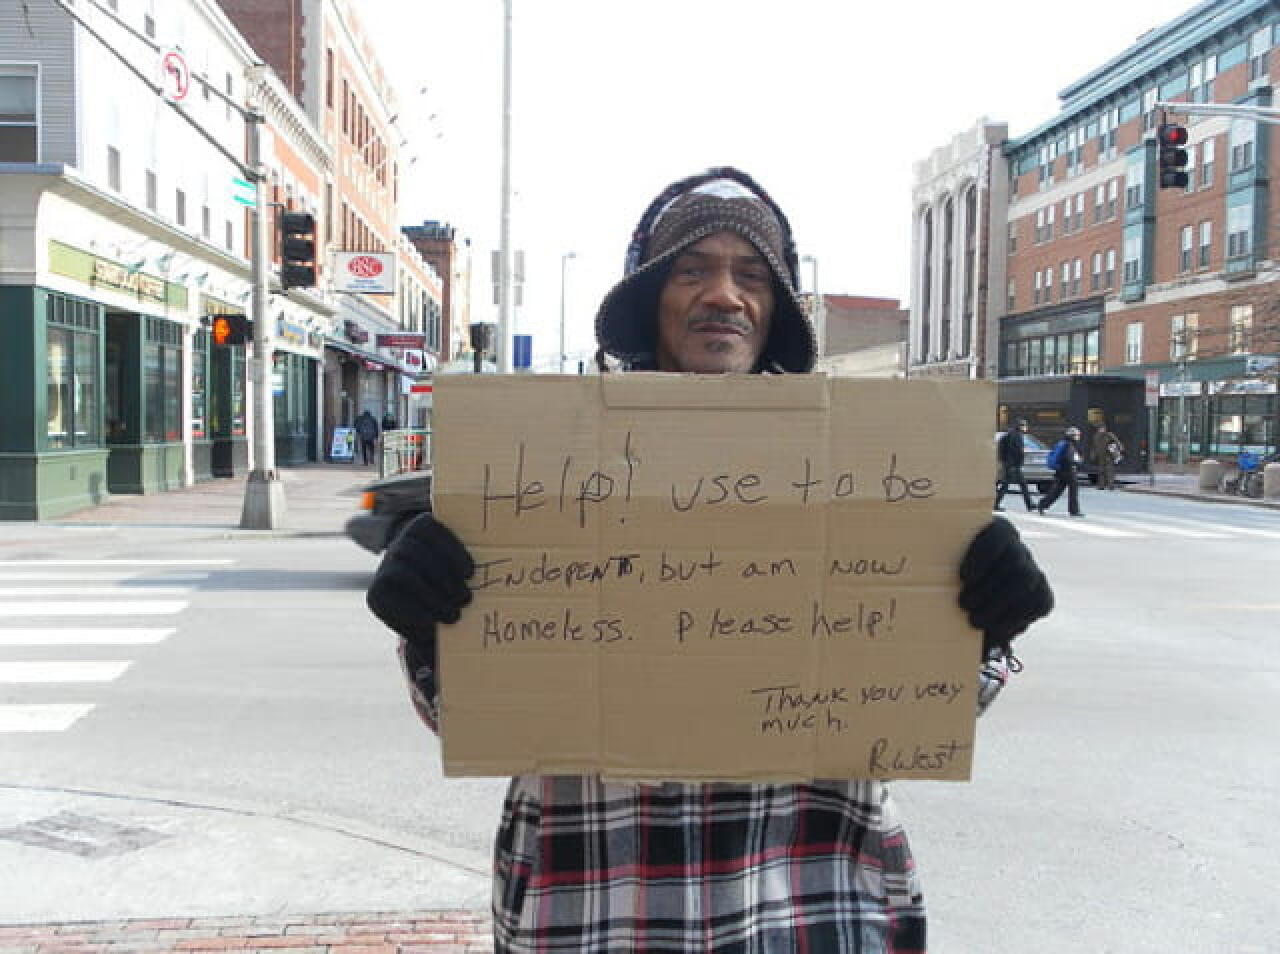 Help! use to be
INdepeNT, but am NOW
Homeless. Please help!
Thank you very
much.
RWest